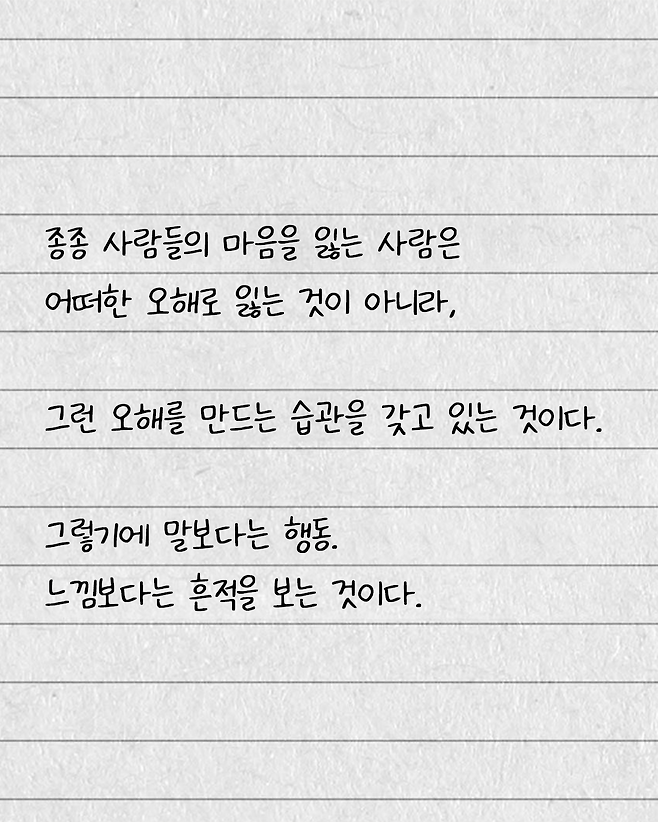 종종 사람들의 마음을 잃는 사람은
어떠한 오해로 잃는 것이 아니라,
그런 오해를 만드는 습관을 갖고 있는 것이다.
그렇기에 말보다는 행동.
느낌보다는 흔적을 보는 것이다.